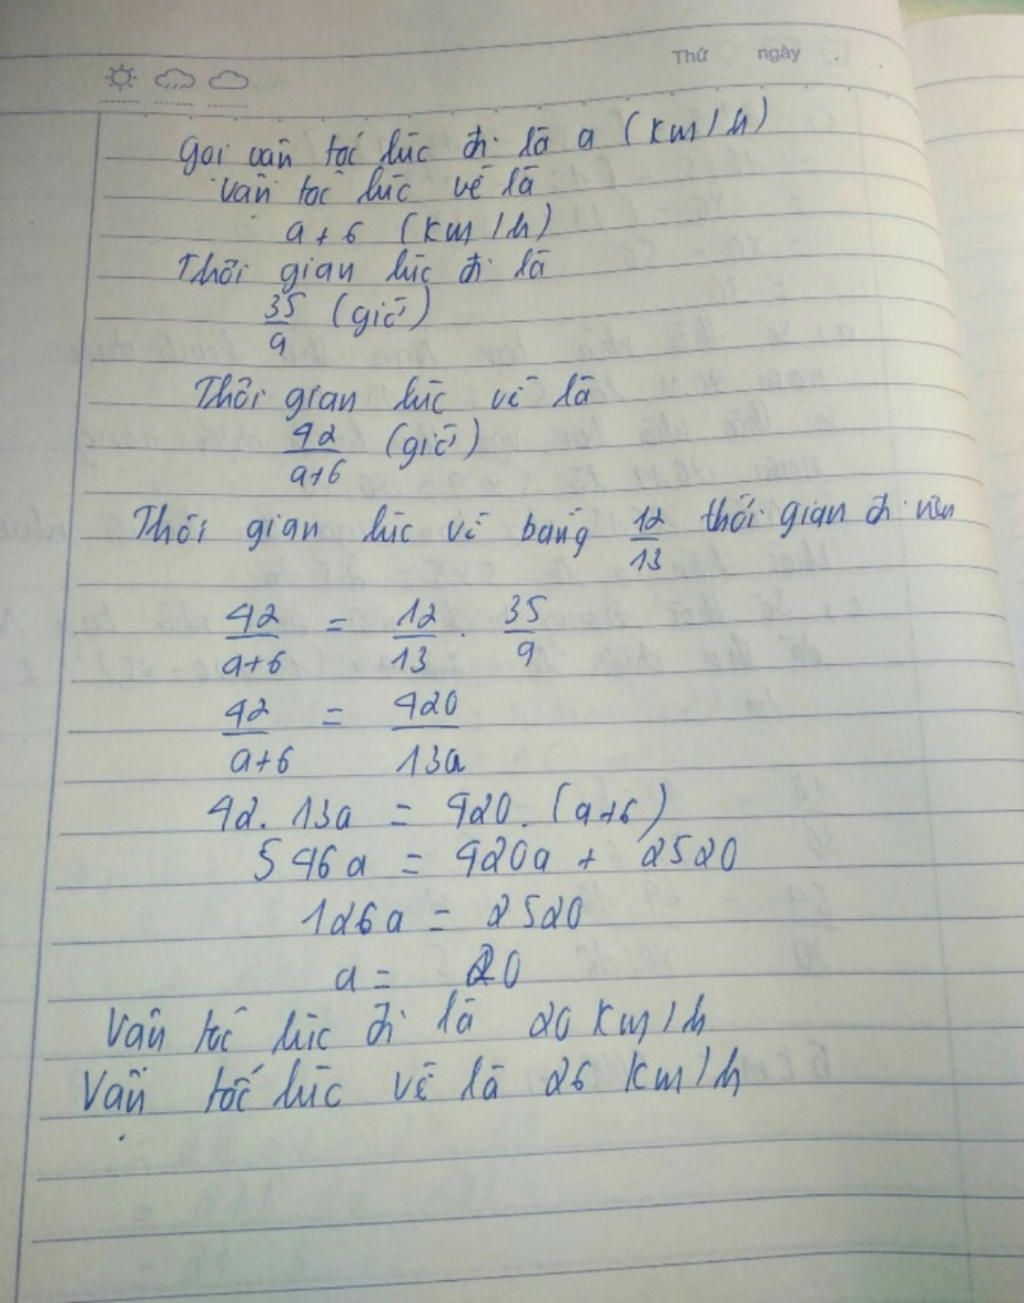 Thứ ngày
Gọi vận tốc lúc đi là a (km/h)
Vận tốc lúc về là
a+6 (km/h)
Thời gian lúc đi là
35/a (giờ)
Thời gian lúc về là
42/a+6 (giờ)
Thời gian lúc về bằng 12/13 thời gian đi nên
42/a+6 = 12/13 . 35/a
42/a+6 = 420/13a
42. 13a = 420. (a+6)
546a = 420a + 2520
126a = 2520
a = 20
Vận tốc lúc đi là 20 km/h
Vận tốc lúc về là 26 km/h